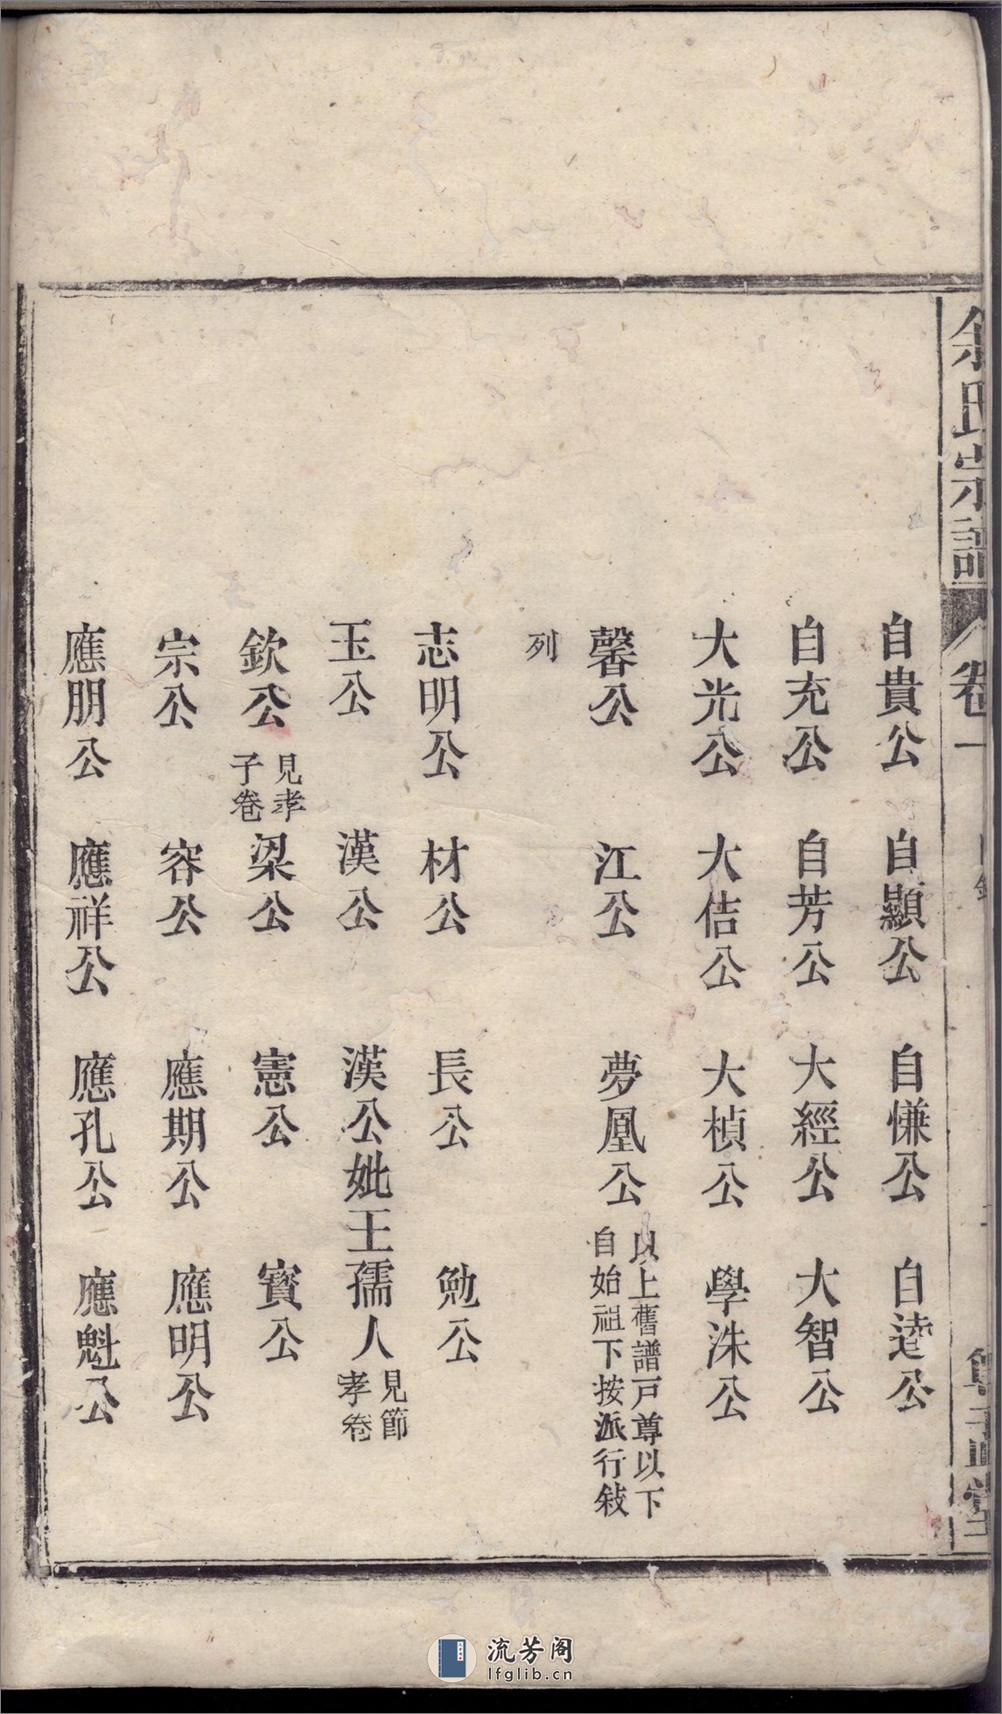 余氏宗譜 卷一 目錄
自貴公 自顯公 自慊公 自逵公
自充公 自芳公 大經公 大智公
大光公 大佶公 大楨公 學洙公
馨公 江公 夢凰公 以上舊譜戸尊以下自始祖下按派行敍
列
志明公 材公 長公 勉公
玉公 漢公 漢公妣王孺人 見節孝卷
欽公 見孝子卷 梁公 憲公 賓公
宗公 容公 應期公 應明公
應朋公 應祥公 應孔公 應魁公
流芳阁
lfglib.cn